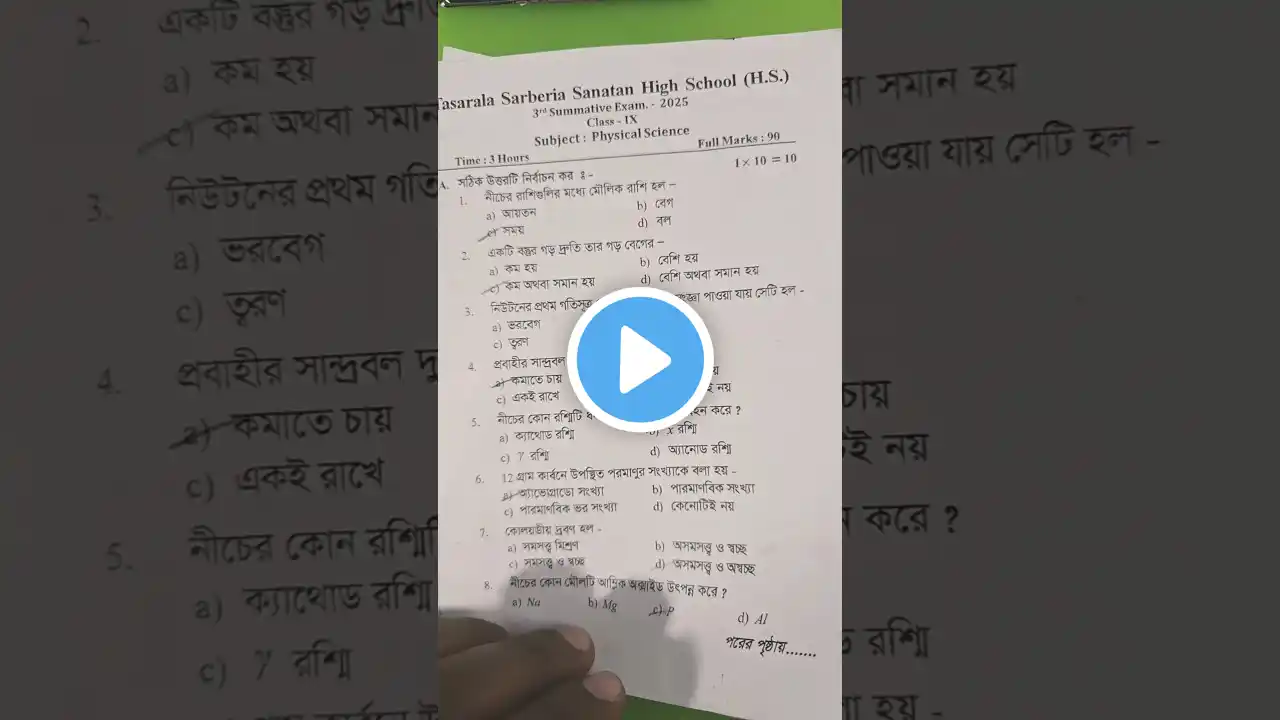 Tasarala Sarberia Sanatan High School (H.S.)
3rd Summative Exam. - 2025
Class - IX
Subject : Physical Science
Time : 3 Hours Full Marks : 90
A. সঠিক উত্তরটি নির্বাচন কর ঃ - 1 × 10 = 10
1. নীচের রাশিগুলির মধ্যে মৌলিক রাশি হল –
a) আয়তন b) বেগ
c) সময় d) বল
2. একটি বস্তুর গড় দ্রুতি তার গড় বেগের –
a) কম হয় b) বেশি হয়
c) কম অথবা সমান হয় d) বেশি অথবা সমান হয়
3. নিউটনের প্রথম গতিসূত্র পাওয়া যায় সেটি হল -
a) ভরবেগ
c) ত্বরণ
4. প্রবাহীর সান্দ্রবল
a) কমাতে চায়
c) একই রাখে নয়
5. নীচের কোন রশ্মিটি করে ?
a) ক্যাথোড রশ্মি b) x রশ্মি
c) γ রশ্মি d) অ্যানোড রশ্মি
6. 12 গ্রাম কার্বনে উপস্থিত পরমাণুর সংখ্যাকে বলা হয় -
a) অ্যাভোগ্রাডো সংখ্যা b) পারমাণবিক সংখ্যা
c) পারমাণবিক ভর সংখ্যা d) কোনোটিই নয়
7. কোলয়ডীয় দ্রবণ হল -
a) সমসত্ত্ব মিশ্রণ b) অসমসত্ত্ব ও স্বচ্ছ
c) সমসত্ত্ব ও স্বচ্ছ d) অসমসত্ত্ব ও অস্বচ্ছ
8. নীচের কোন মৌলটি আম্লিক অক্সাইড উৎপন্ন করে ?
a) Na b) Mg c) P d) Al
পরের পৃষ্ঠায়.......